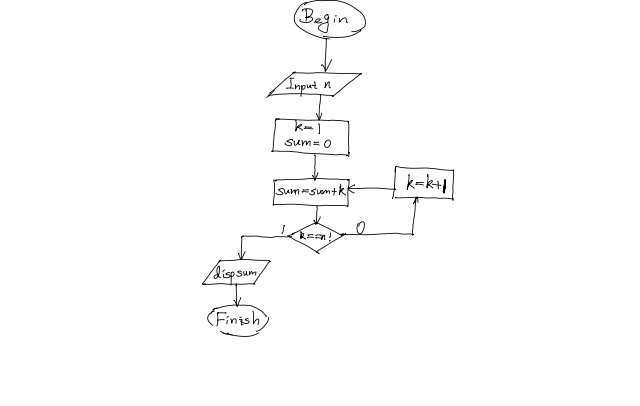 Begin
Input n
k=1
sum=0
sum=sum+k
k=k+1
k==n!
1
0
disp sum
Finish